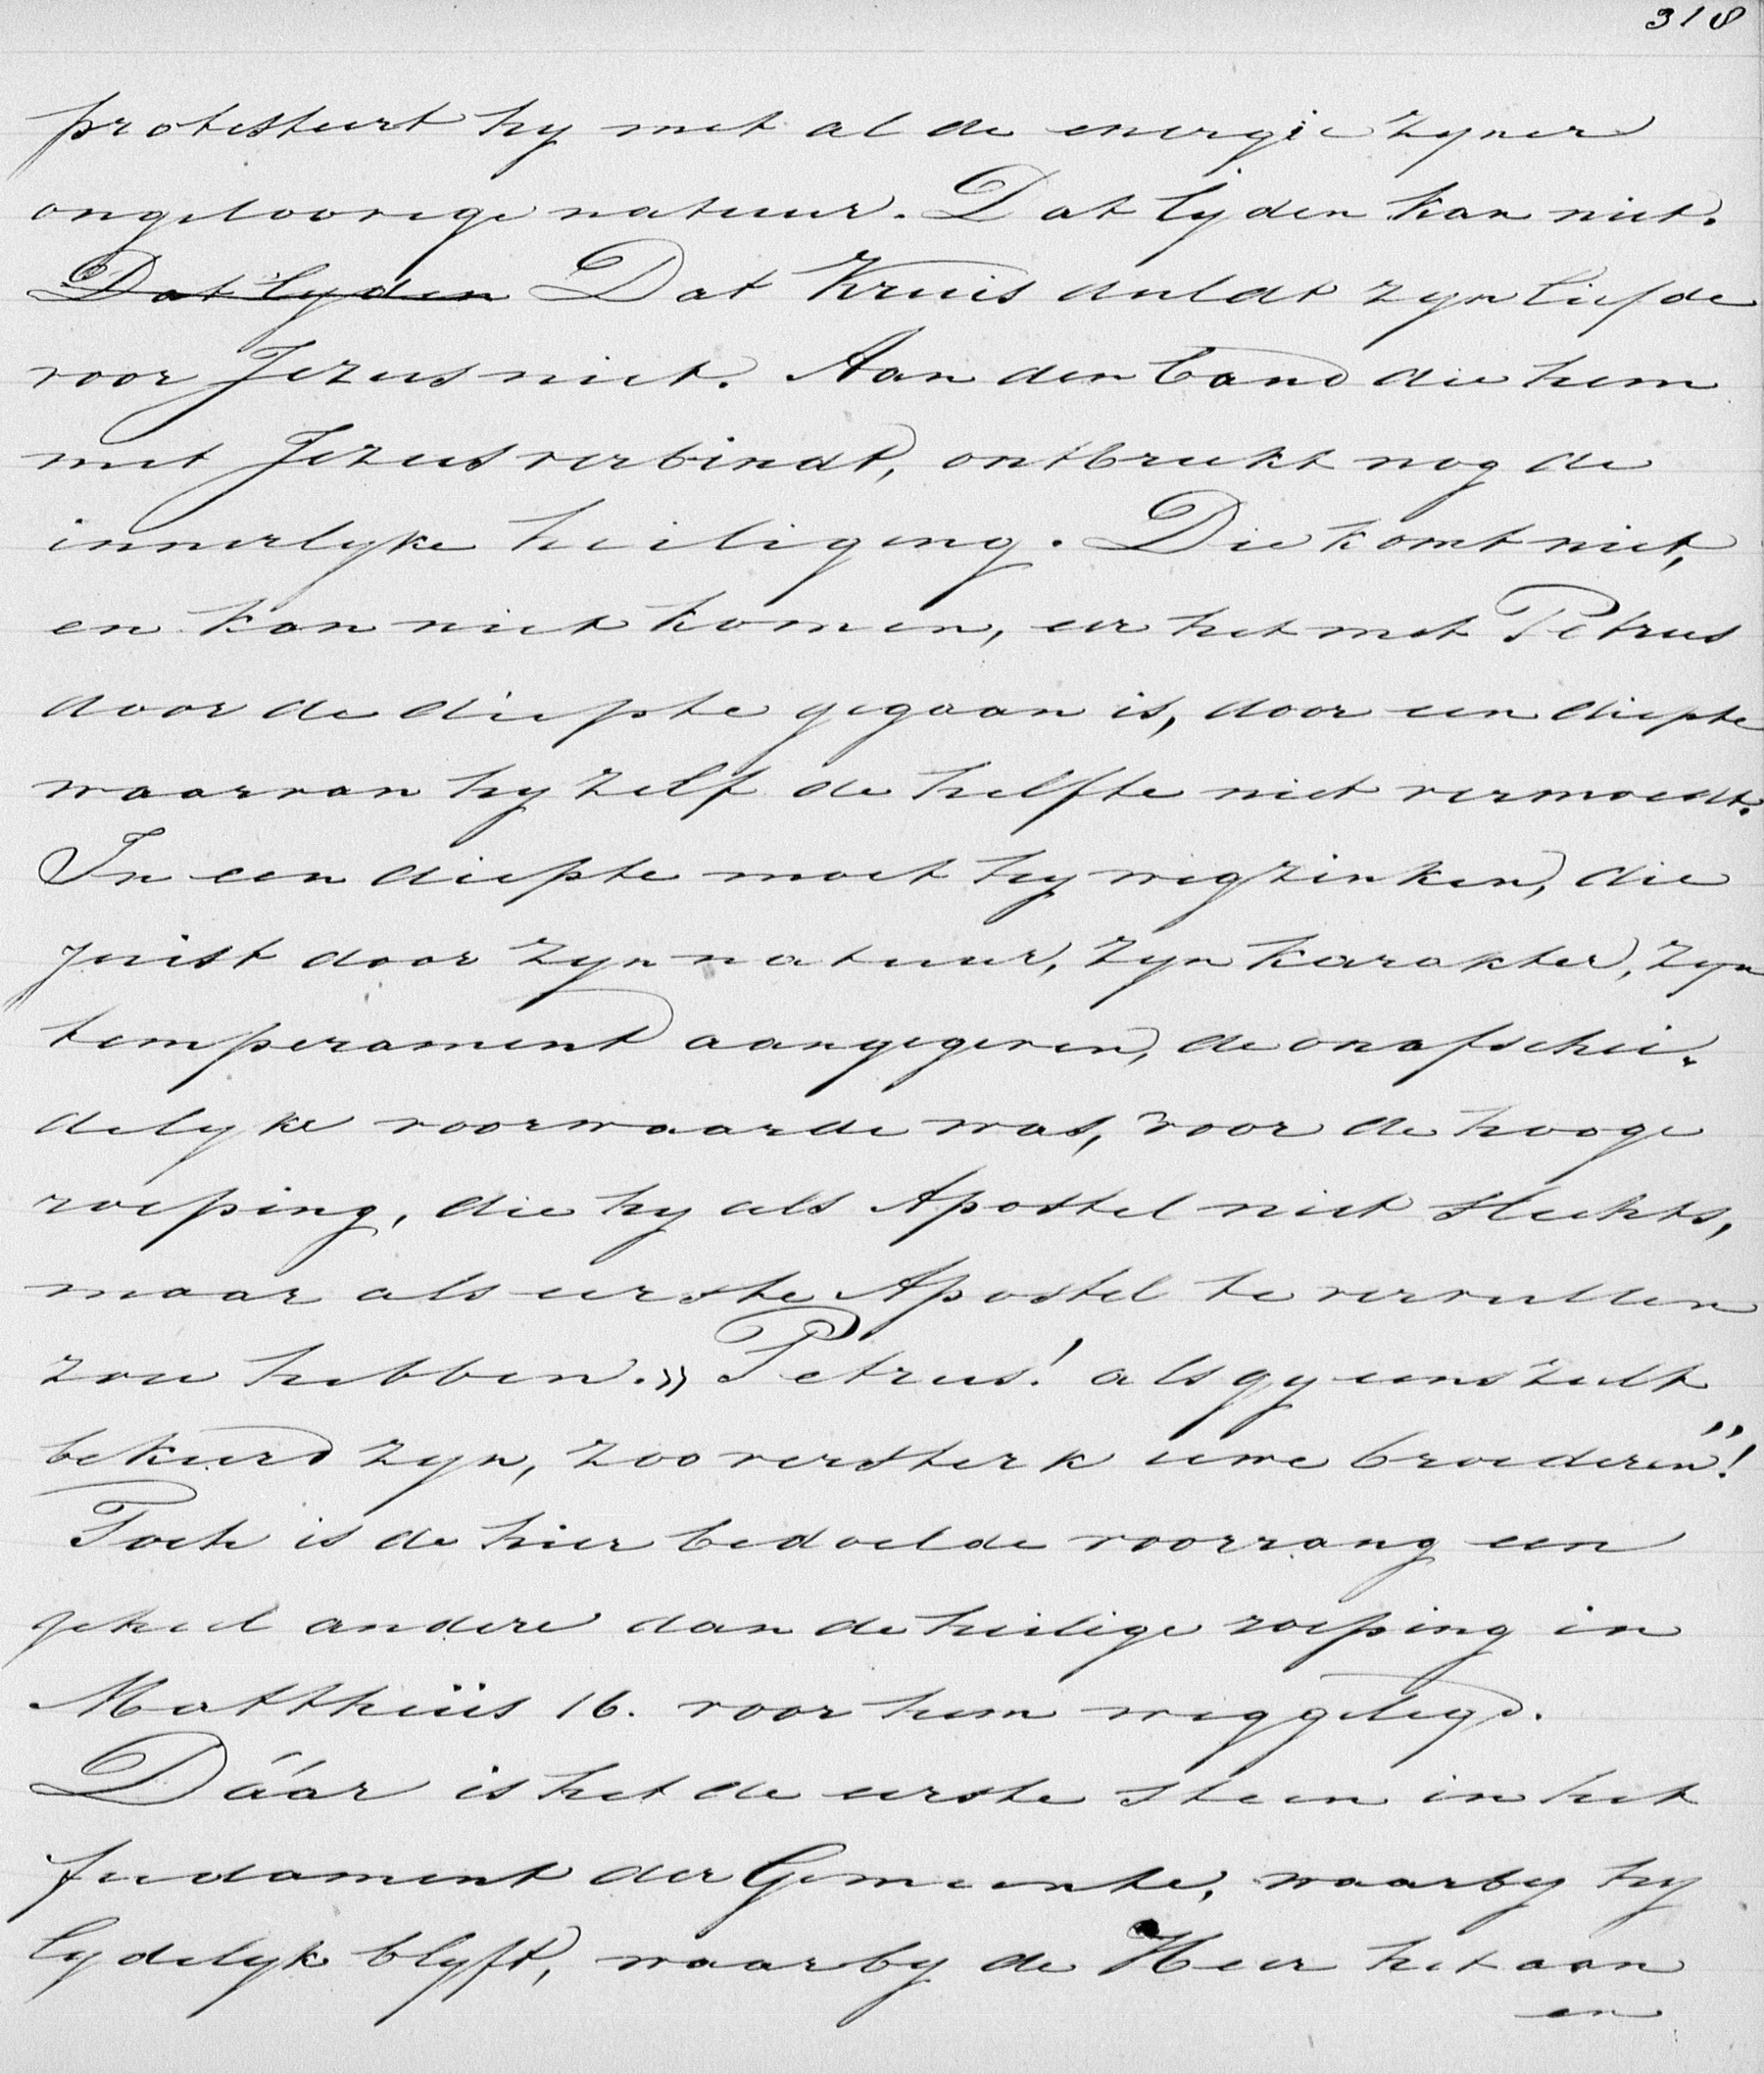 318
protesteert hy met al de energie zyner
ongeloovige natuur. Dat lyden kan niet.
Dat lyden Dat Kruis duldt zyn liefde
voor Jezus niet. Aan den band die hem
met Jezus verbindt, ontbreekt nog de
innerlyke heiliging. Die komt niet,
en kan niet komen, eer het met Petrus
door de diepte gegaan is, door een diepte
waarvan hy zelf de helfte niet vermoedt.
In een diepte moet hy wegzinken, die
juist door zyn natuur, zyn karakter, zyn
temperament aangegeven, de onafschei-
delyke voorwaarde was, voor de hooge
roeping, die hy als Apostel niet slechts,
maar als eerste Apostel te vervullen
zou hebben. » Petrus! als gy eens zult
bekeerd zyn, zoo versterk uwe broederen"!
Toch is de hier bedoelde voorrang een
geheel andere dan de heilige roeping in
Mattheüs 16. voor hem weggelegd.
Dáár is het de eerste steen in het
fudament der Gemeente, waarby hy
lydelyk blyft, waarby de Heer het aan
en